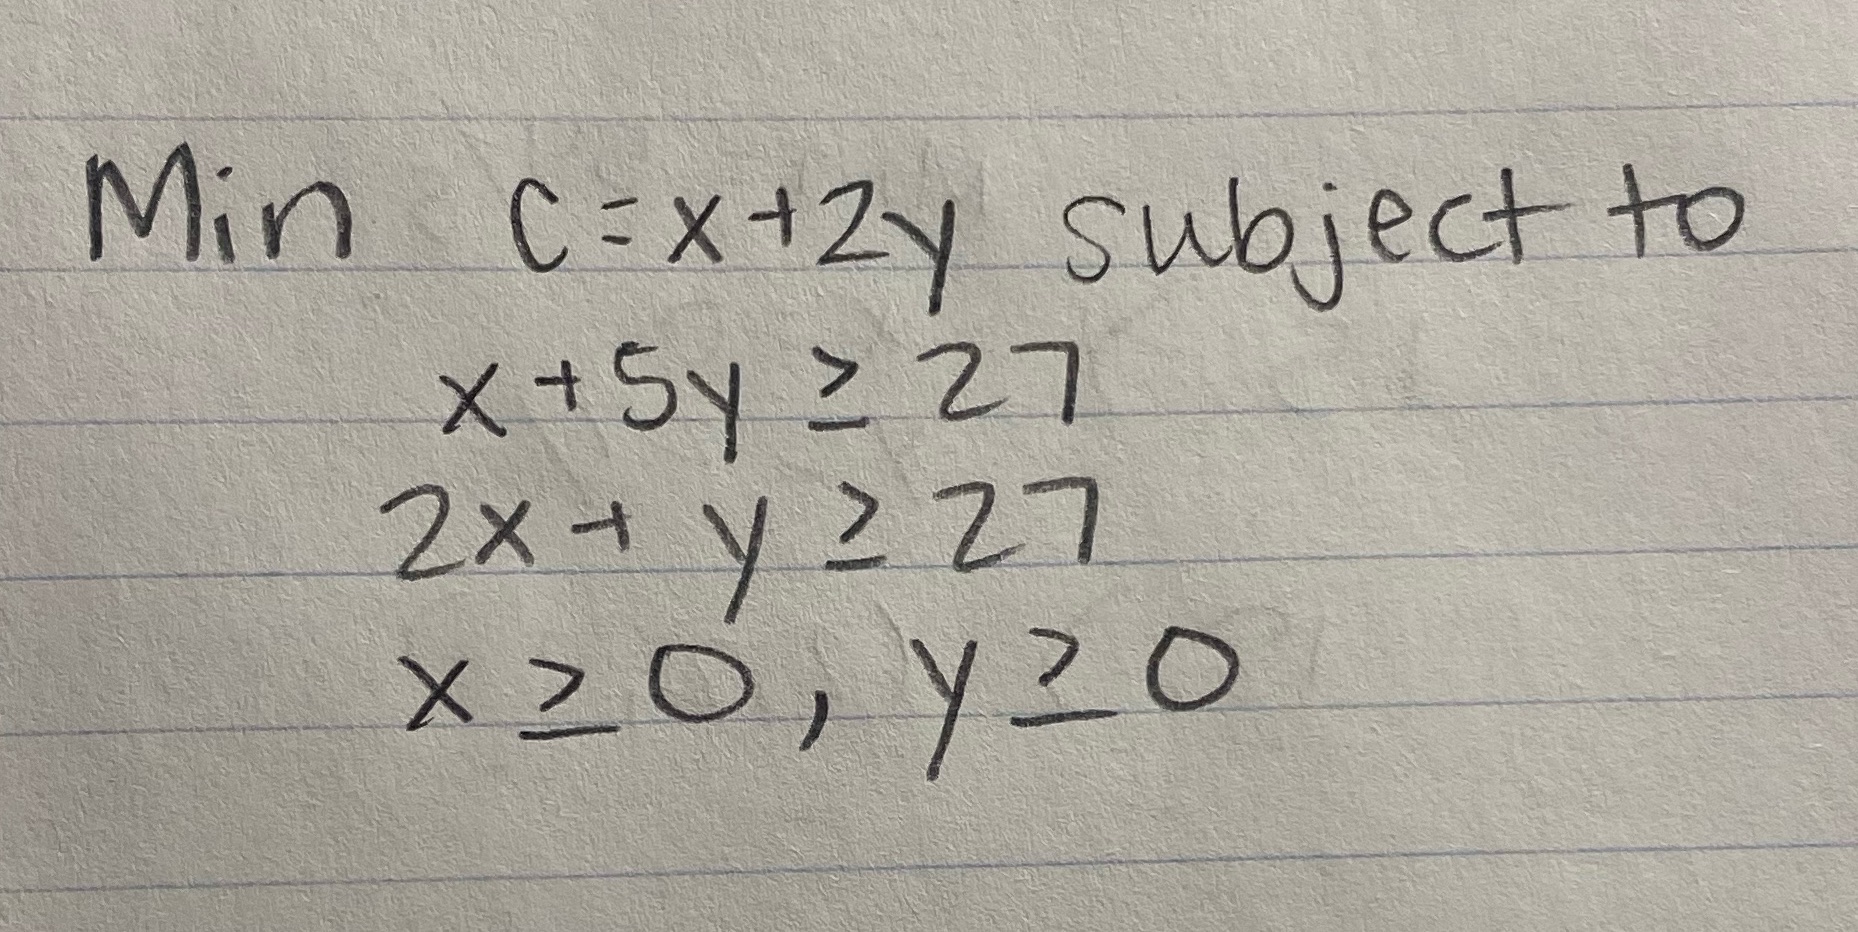 Min C=x+2y subject to
x+5y ≥ 27
2x+ y ≥ 27
x ≥ 0, y ≥ 0